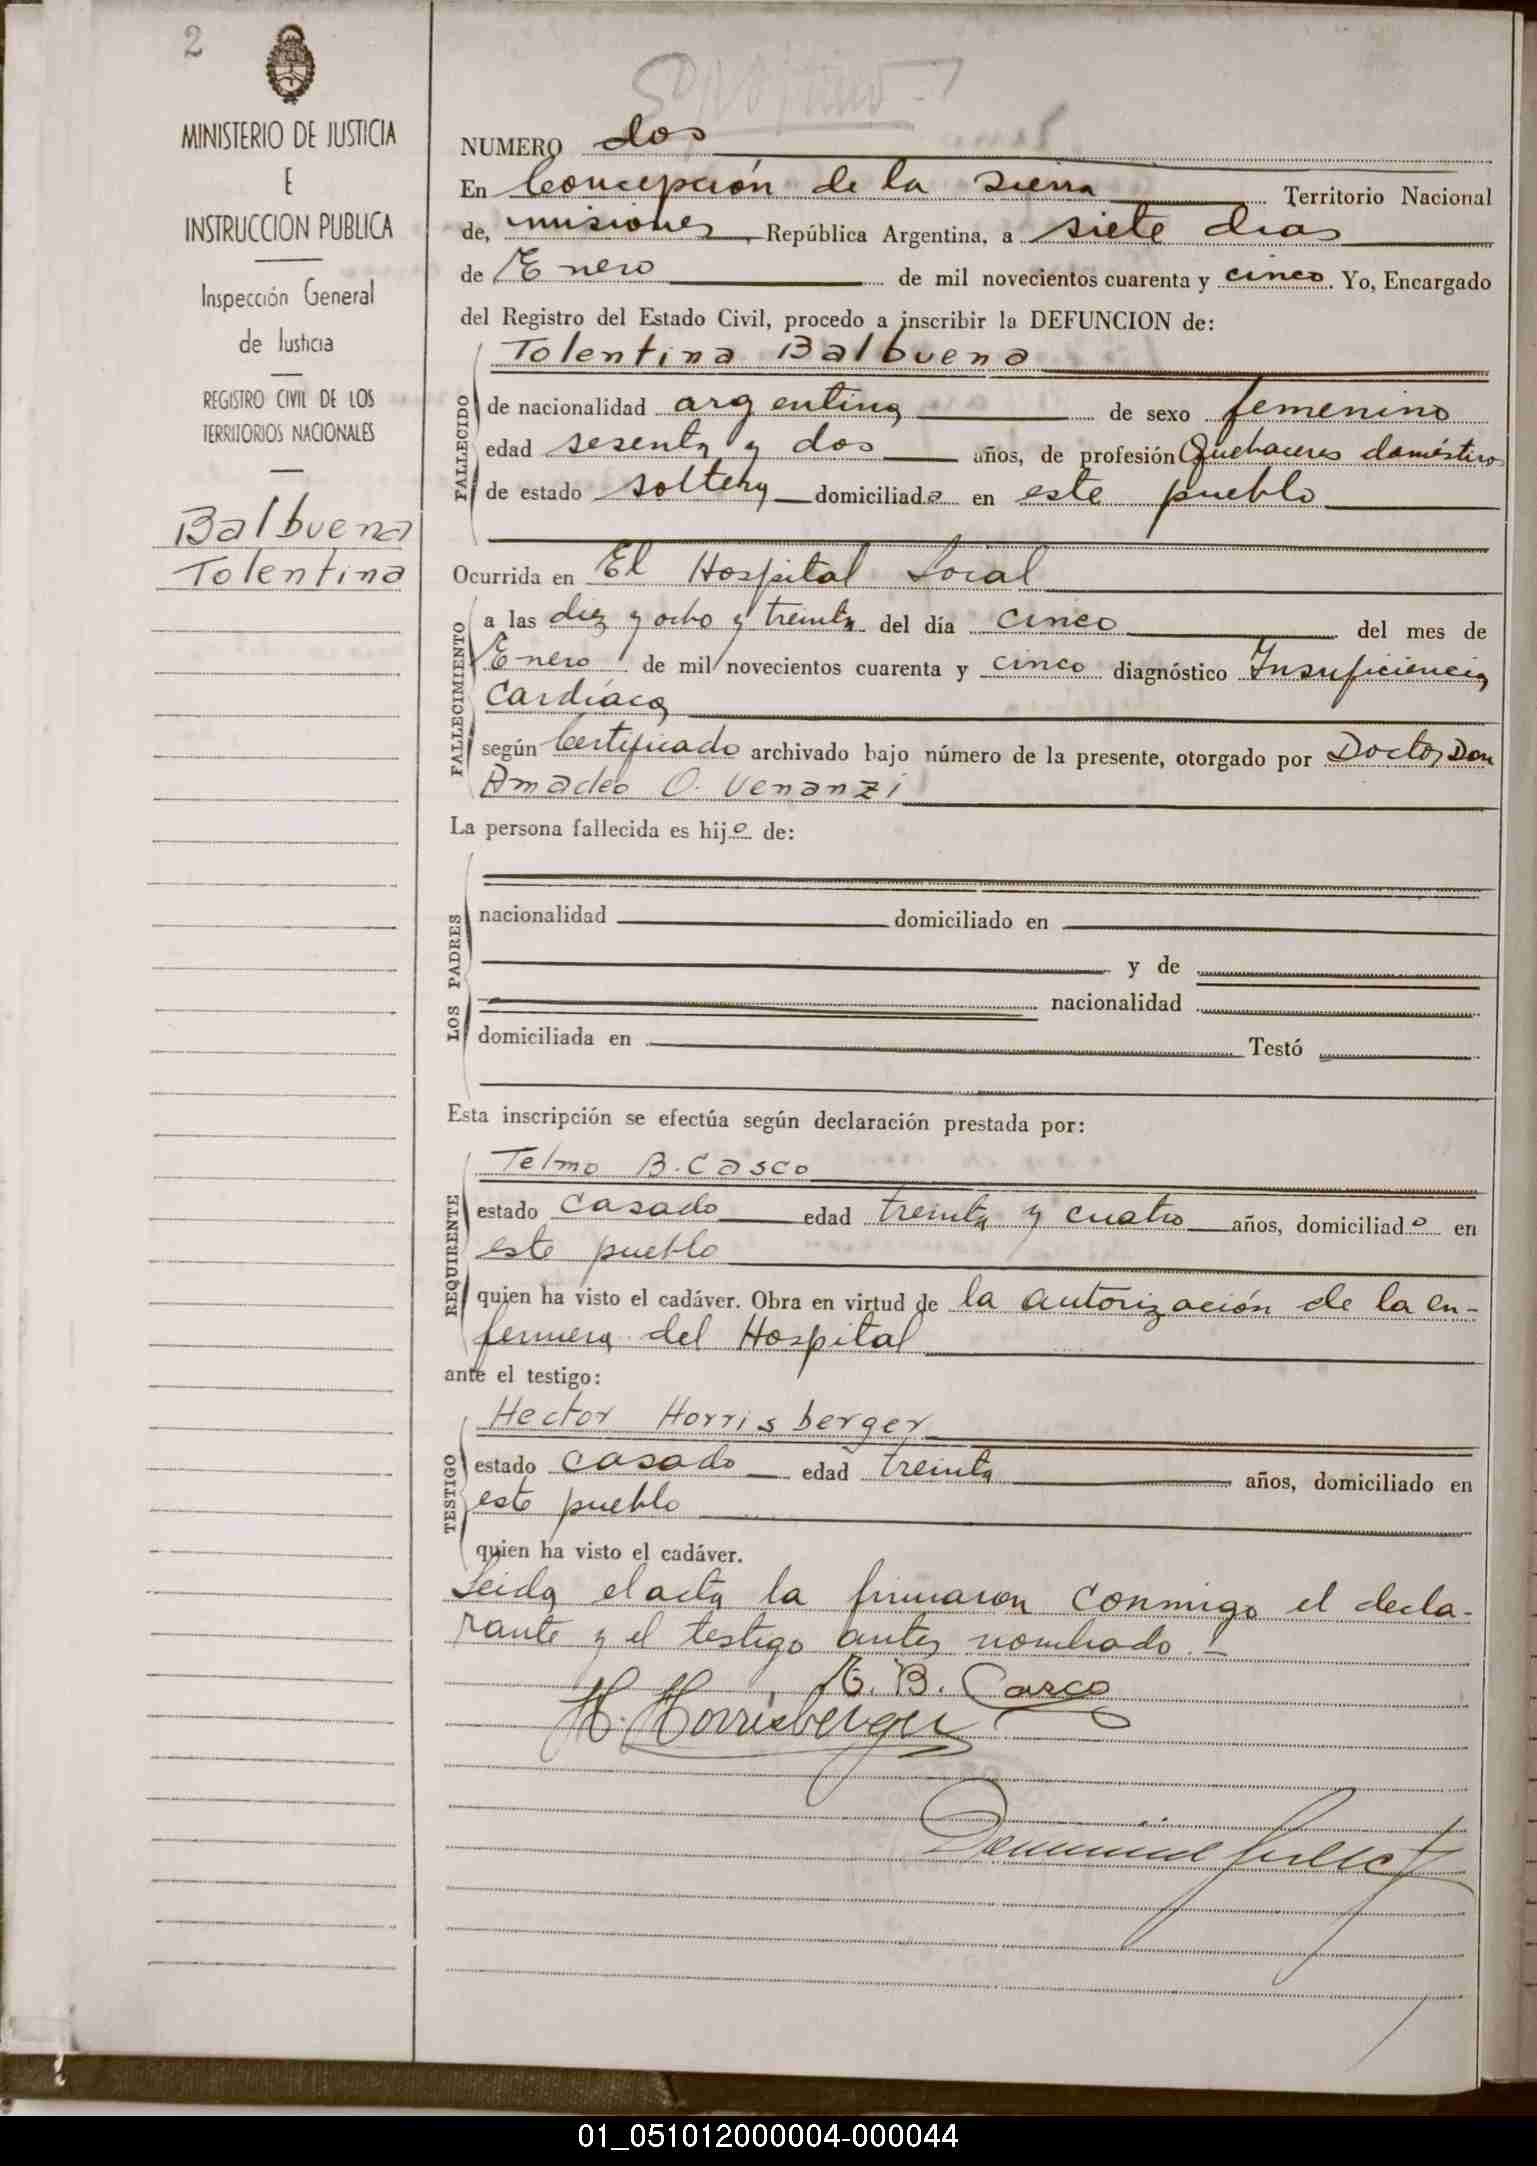 2
MINISTERIO DE JUSTICIA
E
INSTRUCCION PUBLICA
Inspección General
de Justicia
REGISTRO CIVIL DE LOS
TERRITORIOS NACIONALES
Balbuena
Tolentina
NUMERO dos
En Concepción de la Sierra Territorio Nacional
de, misiones, República Argentina, a siete dias
de Enero de mil novecientos cuarenta y cinco. Yo, Encargado
del Registro del Estado Civil, procedo a inscribir la DEFUNCION de:
Tolentina Balbuena
FALLECIDO
de nacionalidad argentina de sexo femenino
edad sesenta y dos años, de profesión Quehaceres domésticos
de estado soltera domiciliada en este pueblo
Ocurrida en El Hospital Local
FALLECIMIENTO
a las diez y ocho y treinta del día cinco del mes de
Enero de mil novecientos cuarenta y cinco diagnóstico Insuficiencia
Cardíaca
según Certificado archivado bajo número de la presente, otorgado por Doctor Don
Amadeo O. Venanzi
La persona fallecida es hijo de:
LOS PADRES
nacionalidad domiciliado en
y de
nacionalidad
domiciliada en Testó
Esta inscripción se efectúa según declaración prestada por:
Telmo B. Casco
REQUIRENTE
estado casado edad treinta y cuatro años, domiciliado en
este pueblo
quien ha visto el cadáver. Obra en virtud de la autorización de la en-
fermera del Hospital
ante el testigo:
Hector Horrisberger
TESTIGO
estado casado edad treinta años, domiciliado en
este pueblo
quien ha visto el cadáver.
Leida el acta la firmaron conmigo el decla-
rante y el testigo antes nombrado.-
B. Casco
H. Horrisberger
01_051012000004-000044